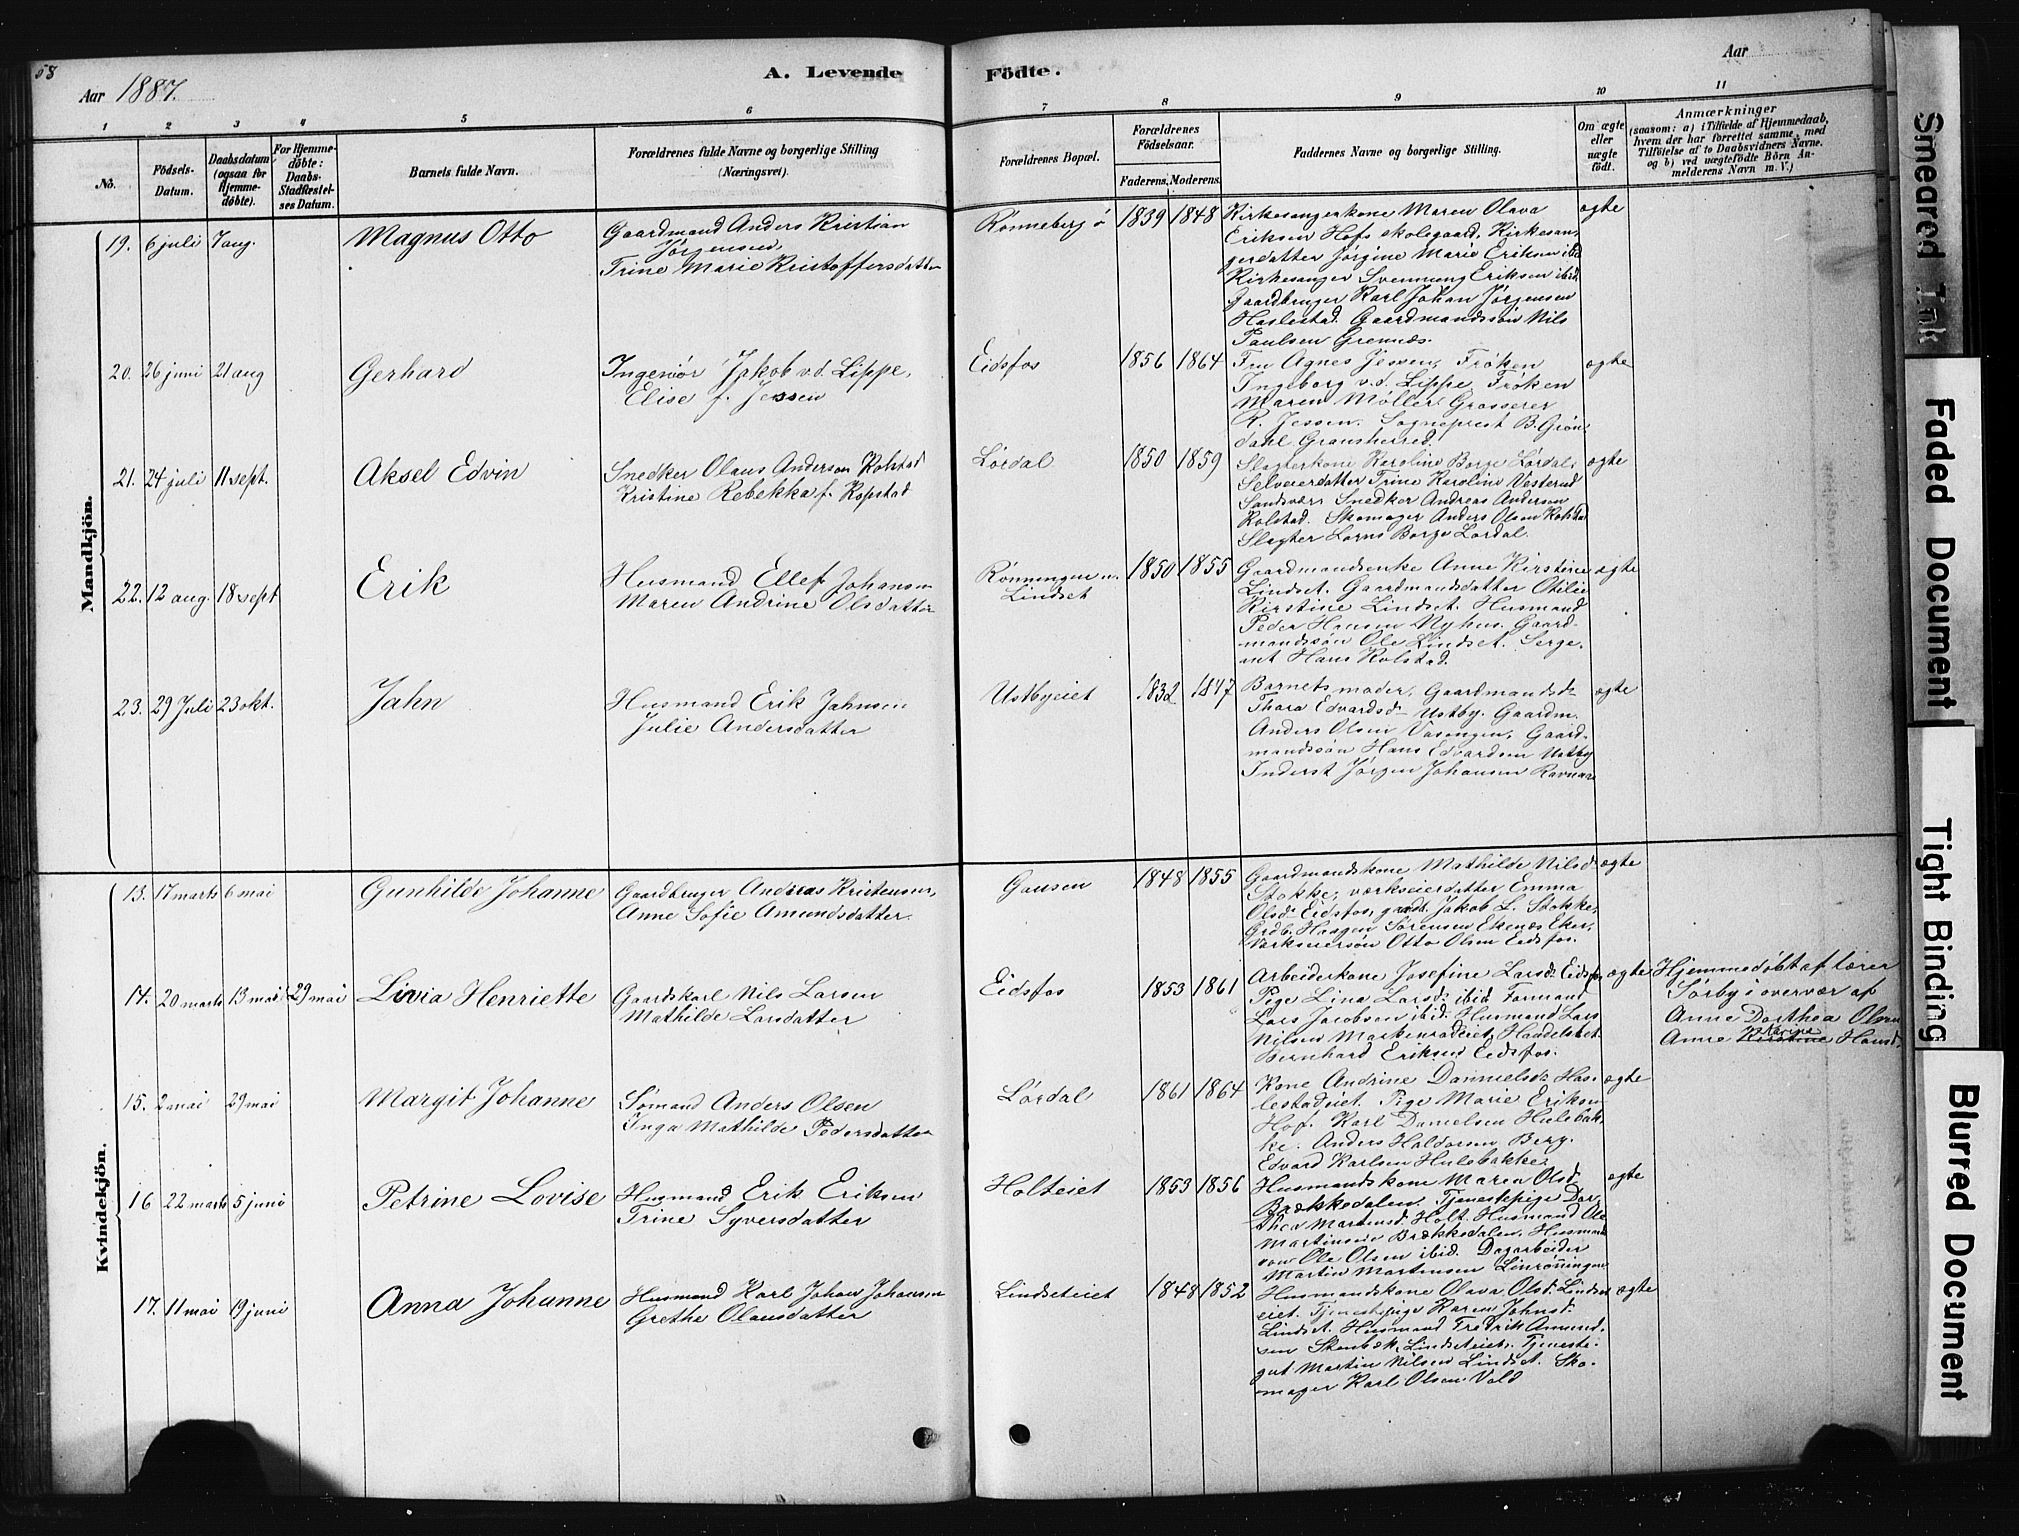 58
Aar 1887.
A. Levende
Födte.
Aar
1 2 3 4 5 6 7 8 9 10 11
No.
Födsels-
Datum.
Daabsdatum
(ogsaa for
Hjemme-
döbte).
For Hjemme-
döbte:
Daabs-
Stadfæstel-
ses Datum.
Barnets fulde Navn.
Forældrenes fulde Navne og borgerlige Stilling
(Næringsvei).
Forældrenes Bopæl.
Forældrenes
Födselsaar.
Faderens. Moderens.
Faddernes Navne og borgerlige Stilling.
Om ægte
eller
uægte
födt.
Anmærkninger
(saasom: a) i Tilfælde af Hjemmedaab,
hvem der har forrettet samme, med
Tilföielse af to Daabsvidners Navne.
og b) ved uægtefödte Börn An-
melderens Navn m. V.)
Mandkjön.
19. 6 juli 7 aug. Magnus Otto
Gaardmand Anders Kristian
Jørgensen,
Trine Marie Kristoffersdatter
Rønneberg ø 1839 1848
Kirkesangerkone Maren Olava
Eriksen Hofs skolegaard. Kirkesan-
gerdatter Jørgine Marie Eriksen ibid
Kirkesanger Svennung Eriksen ibid.
Gaardbruger Karl Johan Jørgensen
Haslestad. Gaardmandssøn Nils
Paulsen Grennes.
ægte
20. 26 juni 21 aug Gerhard
Ingeniør Jakob v.d. Lippe,
Elise f. Jessen
Eidsfos 1856 1864
Fru Agnes Jessen, Frøken
Ingeborg v.d. Lippe, Frøken
Maren Møller. Grosserer
R. Jessen. Sogneprest B. Grön-
dahl Gransherred.
ægte
21. 24 juli 11 sept. Aksel Edvin
Snedker Olaus Anderson Kolstad
Kristine Rebekka f. Kopstad
Lørdal 1850 1859
Slagterkone Karoline Borge Lørdal,
Selveierdatter Trine Karoline Vesterud
Sandsvær. Snedker Andreas Anderson
Kolstad. Skomager Anders Olsen Kolstad
Slagter Lorns Borge Lørdal.
ægte
22. 12 aug. 18 sept Erik
Husmand Ellef Johansen
Maren Andrine Olsdatter
Rønningen u.
Lindset
1850 1855
Gaardmandsenke Anne Kirstine
Lindset. Gaardmandsdatter Otilie
Kirstine Lindset. Husmand
Peder Hansen Nyhus. Gaard-
mandssøn Ole Lindset. Serge-
ant Hans Kolstad.
ægte
23. 29 Juli 23 okt. Jahn
Husmand Erik Jahnsen
Julie Andersdatter
Ustbyeiet 1832 1847
Barnets moder, Gaardmandsd.
Thara Edvardsd. Ustby. Gaardm.
Anders Olsen Vasengen, Gaard-
mandssøn Hans Edvardsen Ustby
Inderst Jørgen Johansen Ravnaas
ægte
Kvindekjön.
13. 17 marts 6 mai Gunhilde Johanne
Gaardbruger Andreas Kristensen,
Anne Sofie Amundsdatter.
Gausen 1848 1855
Gaardmandskone Mathilde Nilsd.
Stokke, værkseierdatter Emma
Olsd. Eidsfos, Jakob L. Stokke,
Grdb. Haagen Sørensen Ekenes Eker,
Værkseiersøn Otto Olsen Eidsfos.
ægte
14. 20 marts 13 mai 29 mai Livia Henriette
Gaardskarl Nils Larsen
Mathilde Larsdatter
Eidsfos 1853 1861
Arbeiderkone Josefine Larsd. Eidsfos
Pige Lina Larsd. ibid. Formand
Lars Jacobsen ibid. Husmand Lars
Nilsen Markenradeiet, Handelsbet.
Bernhard Eriksen Eidsfos.
ægte
Hjemmedøbt af lærer
Sørby i overvær af
Anne Dorthea Olsen
Anne Kirstine Karine Hansd.
15. 2 mai 29 mai Margit Johanne
Sømand Anders Olsen
Inga Mathilde Pedersdatter
Lørdal 1861 1864
Kone Andrine Danielsd. Has-
lestadeiet. Pige Marie Eriksen
Hof. Karl Danielsen Hulebak-
ke. Anders Haldorsen Berg.
Edvard Karlsen Hulebakke.
ægte
16 22 marts 5 juni Petrine Lovise
Husmand Erik Eriksen
Trine Syversdatter
Holteiet 1853 1856
Husmandskone Maren Olsd.
Brækkedalen, Tjenestepige Dor-
thea Martinsd. Holt. Husmand Ole
Martinsen Brækkedalen. Husmands
søn Ole Olsen ibid. Dagarbeider
Martin Martinsen Linrønningen
ægte
17. 11 mai 19 juni Anna Johanne
Husmand Karl Johan Johansen
Grethe Olausdatter
Lindseteiet 1848 1852
Husmandskone Olava Olsd. Lindset
eiet. Tjenestepige Karen Johnsd.
Lindset. Husmand Fredrik Amund-
sen Skenbek, Lindseteiet. Tjeneste-
gut Martin Nilsen Lindset. Sko-
mager Karl Olsen Vold
ægte
Smeared Ink
Faded Document
Tight Binding
Blurred Document